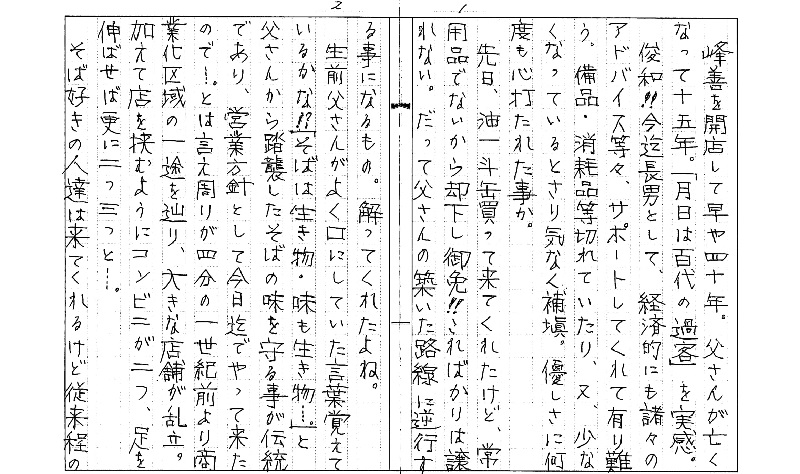 1
峰善を開店して早や四十年。父さんが亡く
なって十五年。「月日は百代の過客」を実感。
俊和!!今迄長男として、経済的にも諸々の
アドバイス等々、サポートしてくれて有り難
う。備品・消耗品等切れていたり、又、少な
くなっているとさり気なく補填。優しさに何
度も心打たれた事か。
先日、油一斗缶買って来てくれたけど、常
用品でないから却下し御免!!こればかりは譲
れない。だって父さんの築いた路線に逆行す
2
る事になるもの。解ってくれたよね。
生前父さんがよく口にしていた言葉覚えて
いるかな!?「そばは生き物・味も生き物…。」と
父さんから踏襲したそばの味を守る事が伝統
であり、営業方針として今日迄でやって来た
ので…。とは言え周りが四分の一世紀前より商
業化区域の一途を辿り、大きな店舗が乱立。
加えて店を挟むようにコンビニが二つ、足を
伸ばせば更に二つ三つと…。
そば好きの人達は来てくれるけど従来程の